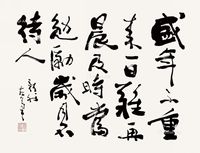 盛年不重
来一日難再
晨及時當
勉勵歲月不
待人